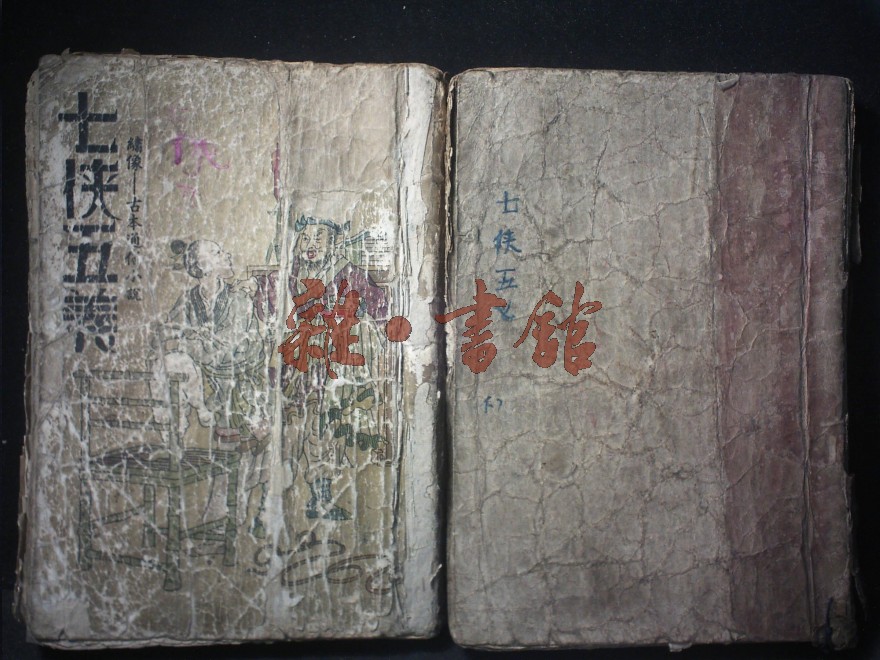 七侠五義
繡像—古本通俗小說
侠
雜·書館
七侠五义